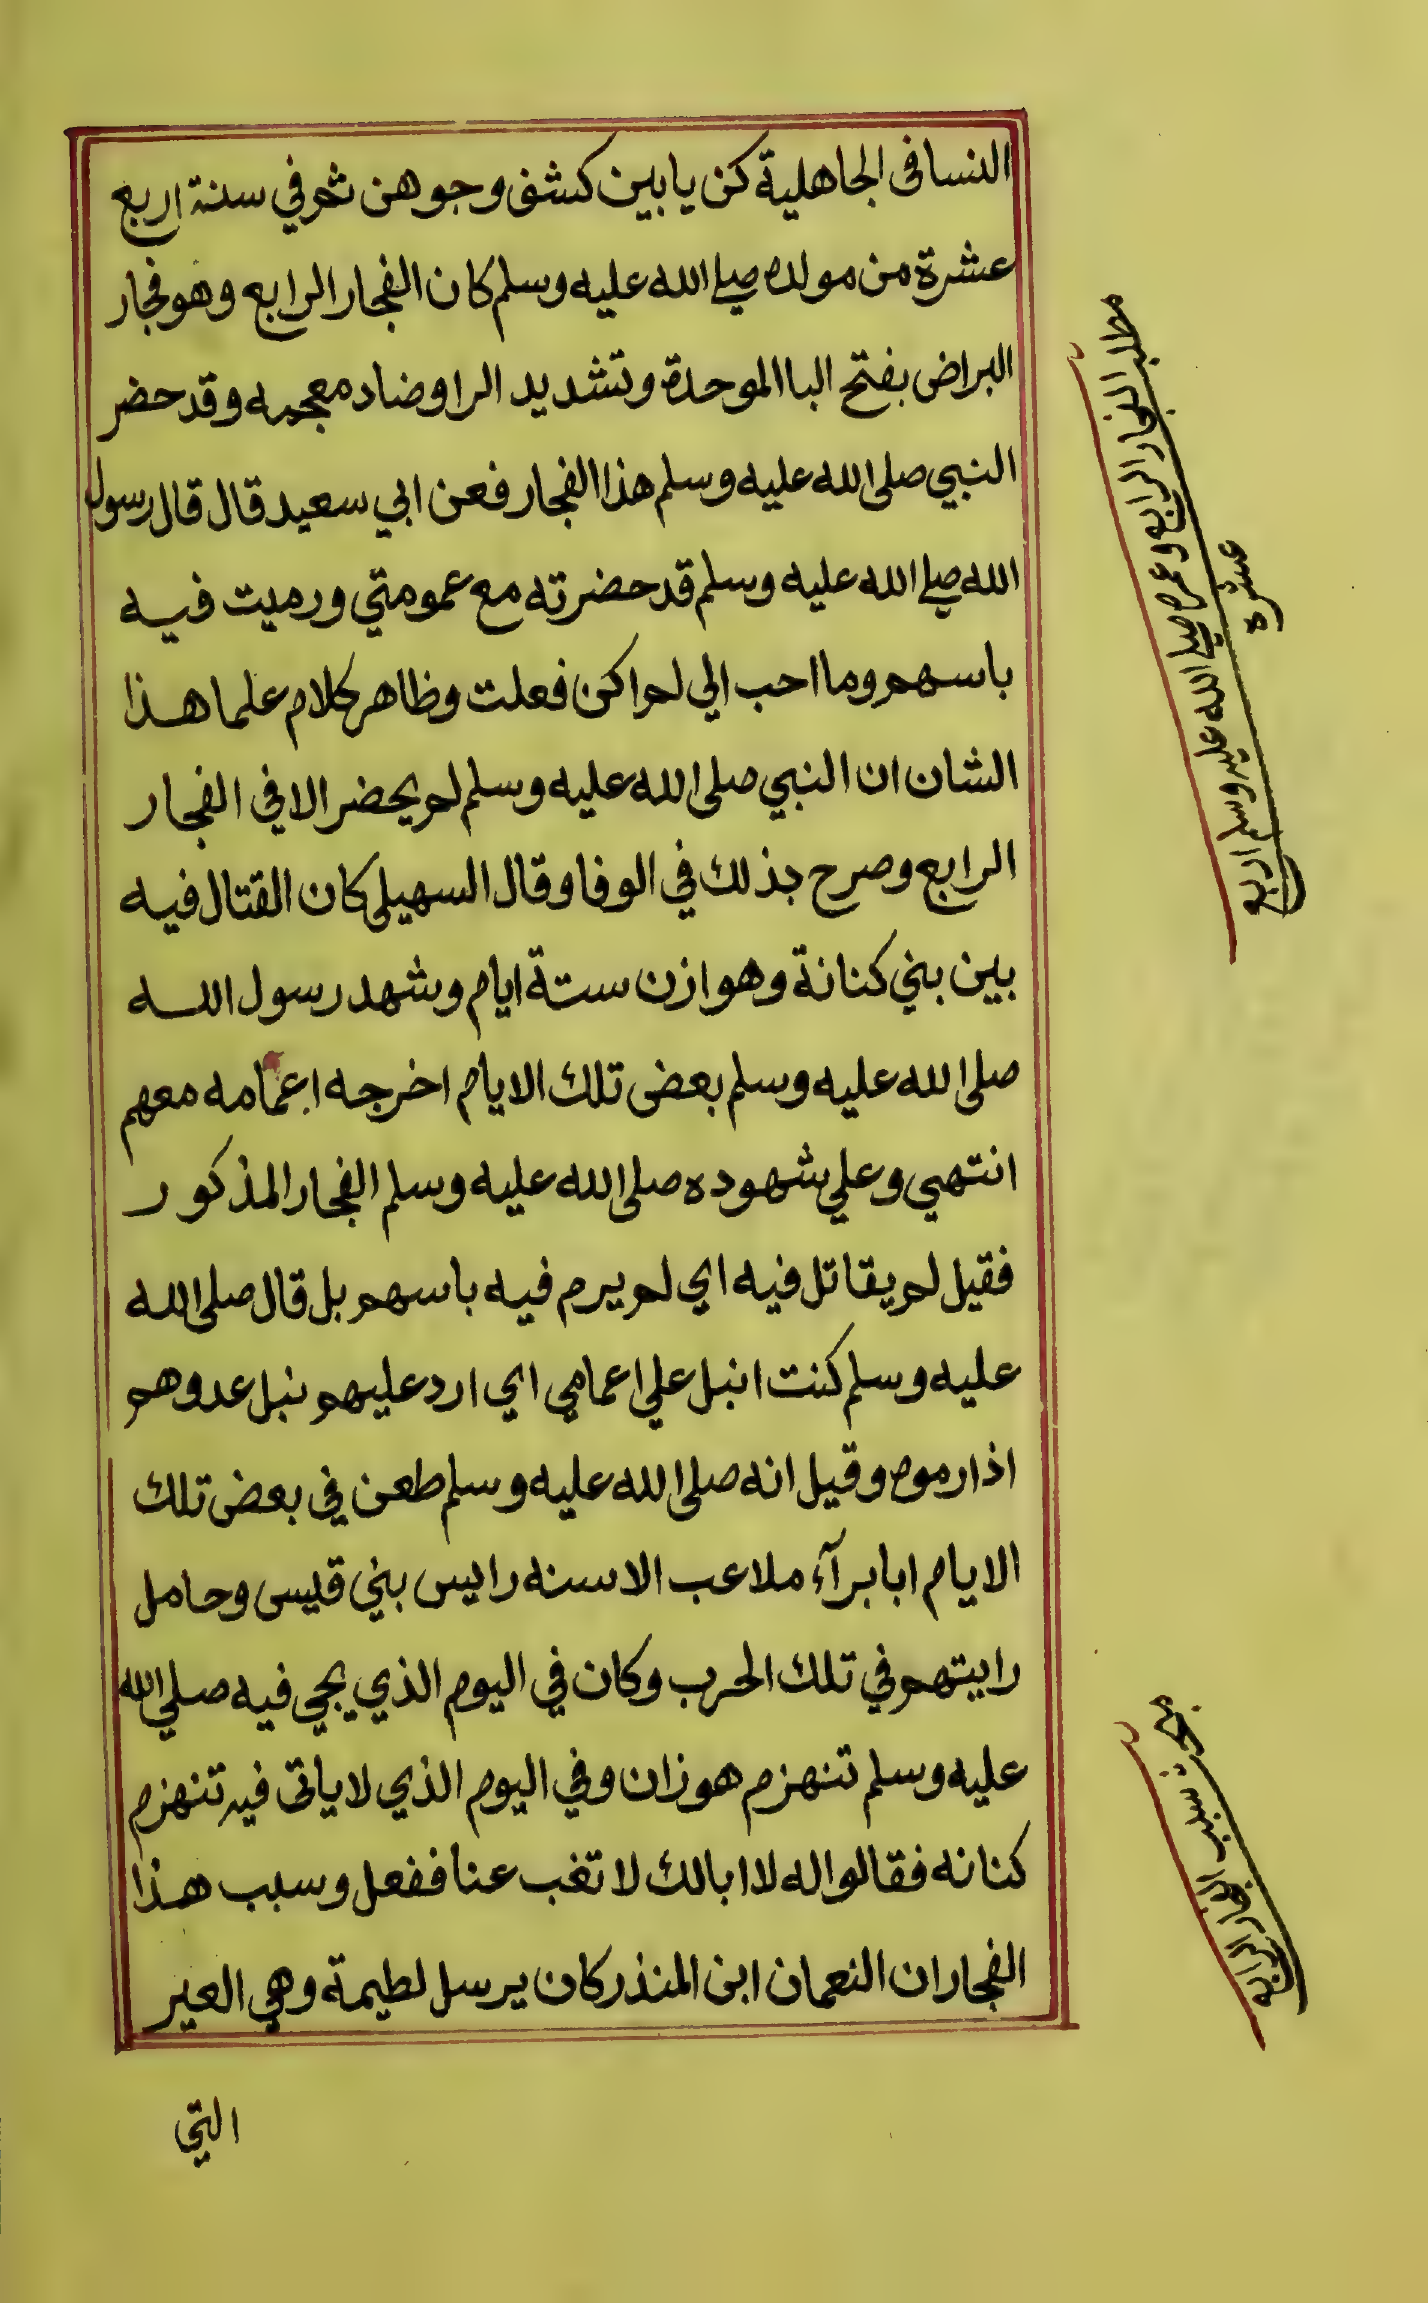 النسا فى الجاهلية كن يابين كشف وجوهن ثم في سنة اربع
عشرة من مولده صلے الله عليه وسلم كان الفجار الرابع وهو فجار
البراض بفتح البا الموحدة وتشديد الرا وضاد معجمه وقد حضر
النبي صلى الله عليه وسلم هذا الفجار فعن ابي سعيد قال قال رسول
الله صلے الله عليه وسلم قد حضرته مع عمومتي ورميت فيه
باسهم وما احب الي لم اكن فعلت وظاهر كلام علما هذا
الشان ان النبي صلى الله عليه وسلم لم يحضر الا في الفجار
الرابع وصرح بذلك في الوفا وقال السهيلى كان القتال فيه
بين بني كنانة وهوازن ستة ايام وشهد رسول الله
صلى الله عليه وسلم بعض تلك الايام اخرجه اعمامه معهم
انتهي وعلي شهوده صلى الله عليه وسلم الفجار المذكور
فقيل لم يقاتل فيه اي لم يرم فيه باسهم بل قال صلى الله
عليه وسلم كنت انبل علي اعمامي اي ارد عليهم نبل عدوهم
اذا رموه وقيل انه صلى الله عليه وسلم طعن في بعض تلك
الايام ابا برآء ملاعب الاسنه رايس بني قيسى وحامل
رايتهم في تلك الحرب وكان في اليوم الذي يجي فيه صلي الله
عليه وسلم تنهزم هوزان وفي اليوم الذي لا ياتى فيه تنهزم
كنانه فقالوا له لا ابالك لا تغب عنا ففعل وسبب هذا
الفجار ان النعمان ابن المنذر كان يرسل لطيمة وهي العير
التي
مطلب الفجار الرابع وعمره صلے الله عليه وسلم اربع
عشرة
مبحث سبب الفجار الرابع